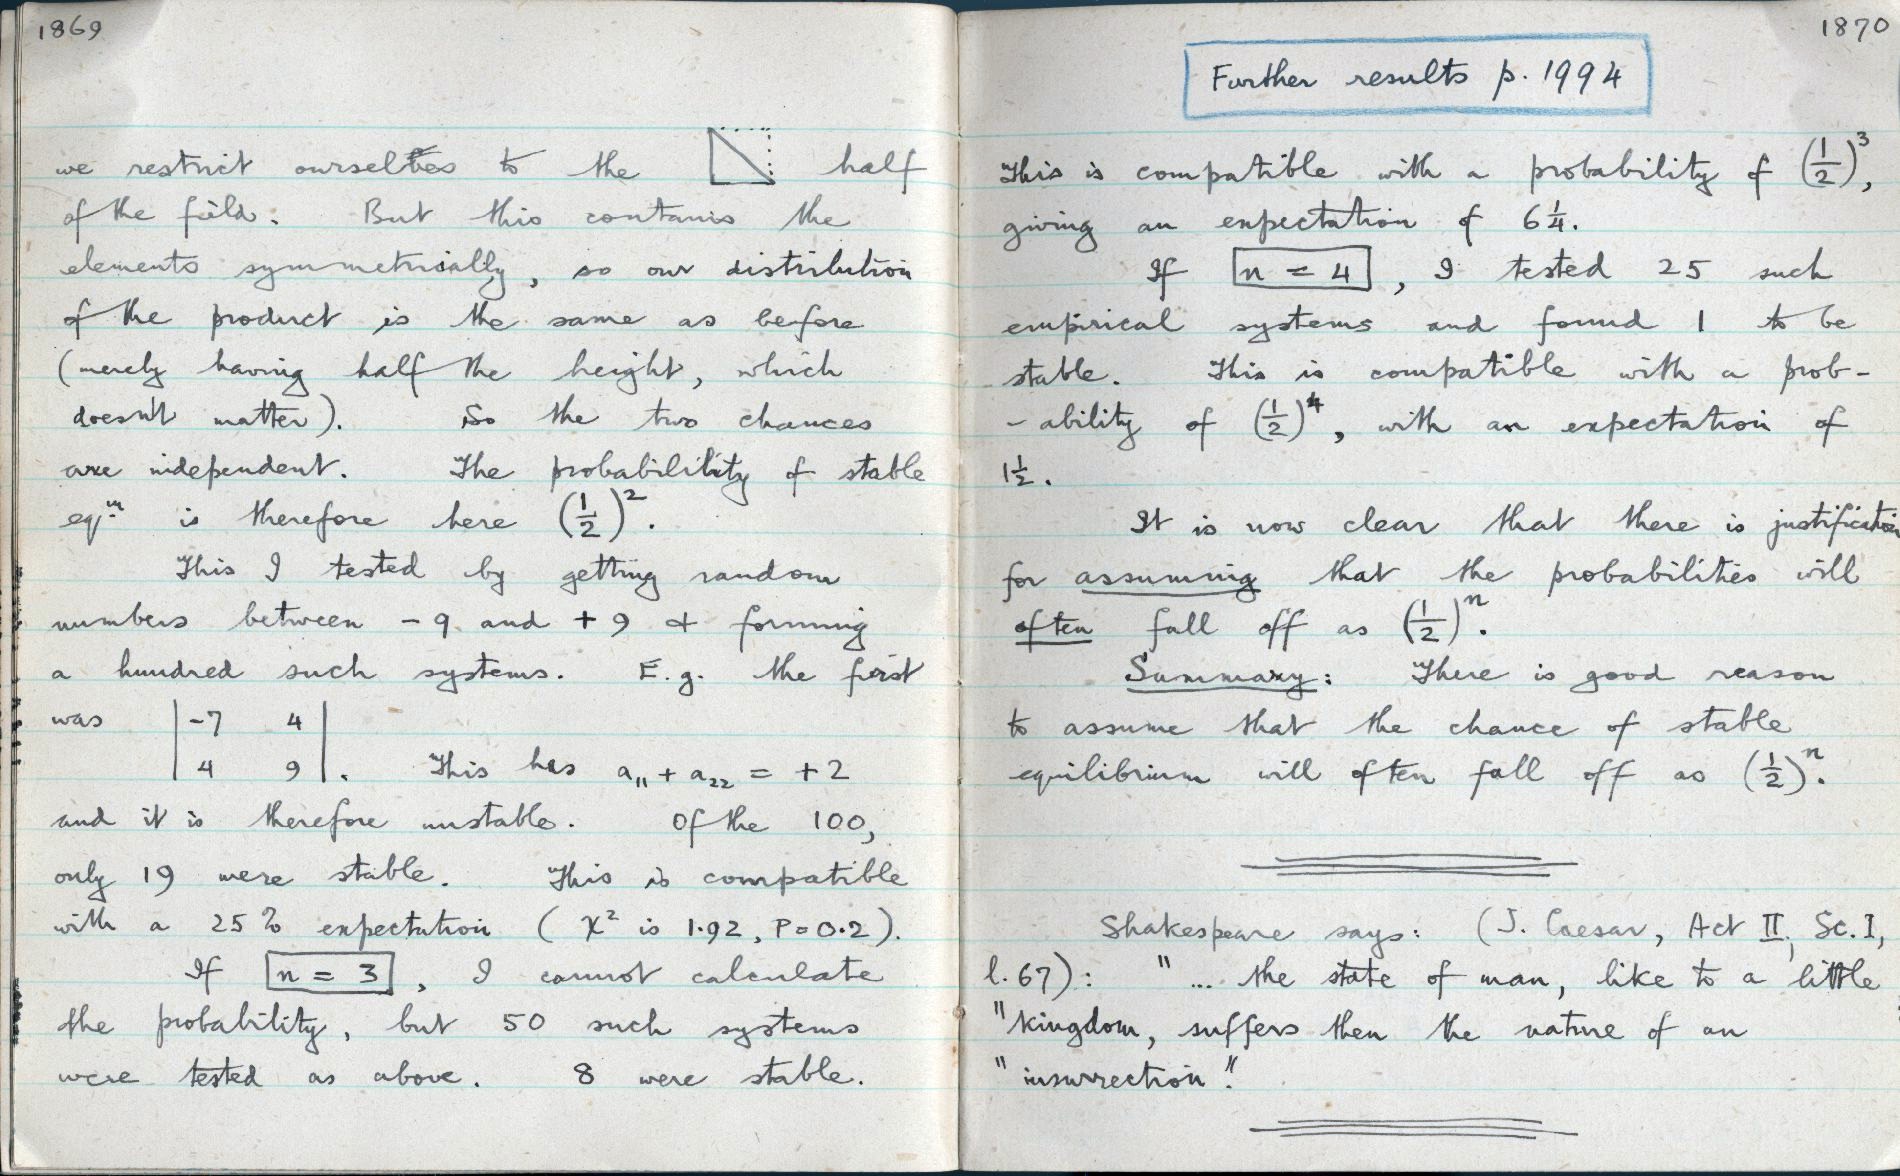 1869
we restrict ourselves to the half
of the field. But this contains the
elements symmetrically, so our distribution
of the product is the same as before
(merely having half the height, which
doesn't matter). So the two chances
are independent. The probability of stable
eqᵐ is therefore here (1/2)².
This I tested by getting random
numbers between -9 and +9 & forming
a hundred such systems. E.g. the first
was | -7 4 |
| 4 9 |. This has a₁₁ + a₂₂ = +2
and it is therefore unstable. Of the 100,
only 19 were stable. This is compatible
with a 25% expectation (χ² is 1.92, P=0.2).
If n = 3, I cannot calculate
the probability, but 50 such systems
were tested as above. 8 were stable.
1870
Further results p. 1994
This is compatible with a probability of (1/2)³,
giving an expectation of 6¼.
If n = 4, I tested 25 such
empirical systems and found 1 to be
stable. This is compatible with a prob-
-ability of (1/2)⁴, with an expectation of
1½.
It is now clear that there is justification
for assuming that the probabilities will
often fall off as (1/2)ⁿ.
Summary: There is good reason
to assume that the chance of stable
equilibrium will often fall off as (1/2)ⁿ.
Shakespeare says: (J. Caesar, Act II, Sc. I,
l. 67): " ... the state of man, like to a little
"kingdom, suffers then the nature of an
"insurrection".